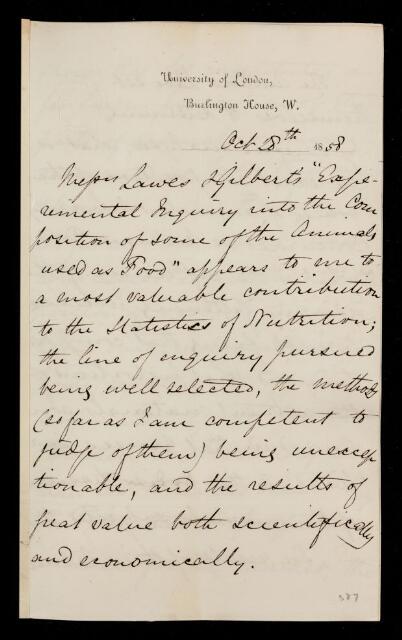 University of London,
Burlington House, W.
Oct 28th 1858
Messrs Lawes & Gilbert's "Expe-
rimental Inquiry into the Com
position of some of the Animals
used as Food" appears to me to
a most valuable contribution
to the Statistics of Nutrition;
the line of enquiry pursued
being well selected, the methods
(so far as I am competent to
judge of them) being unexcep
tionable, and the results of
great value both scientifically
and economically.
387